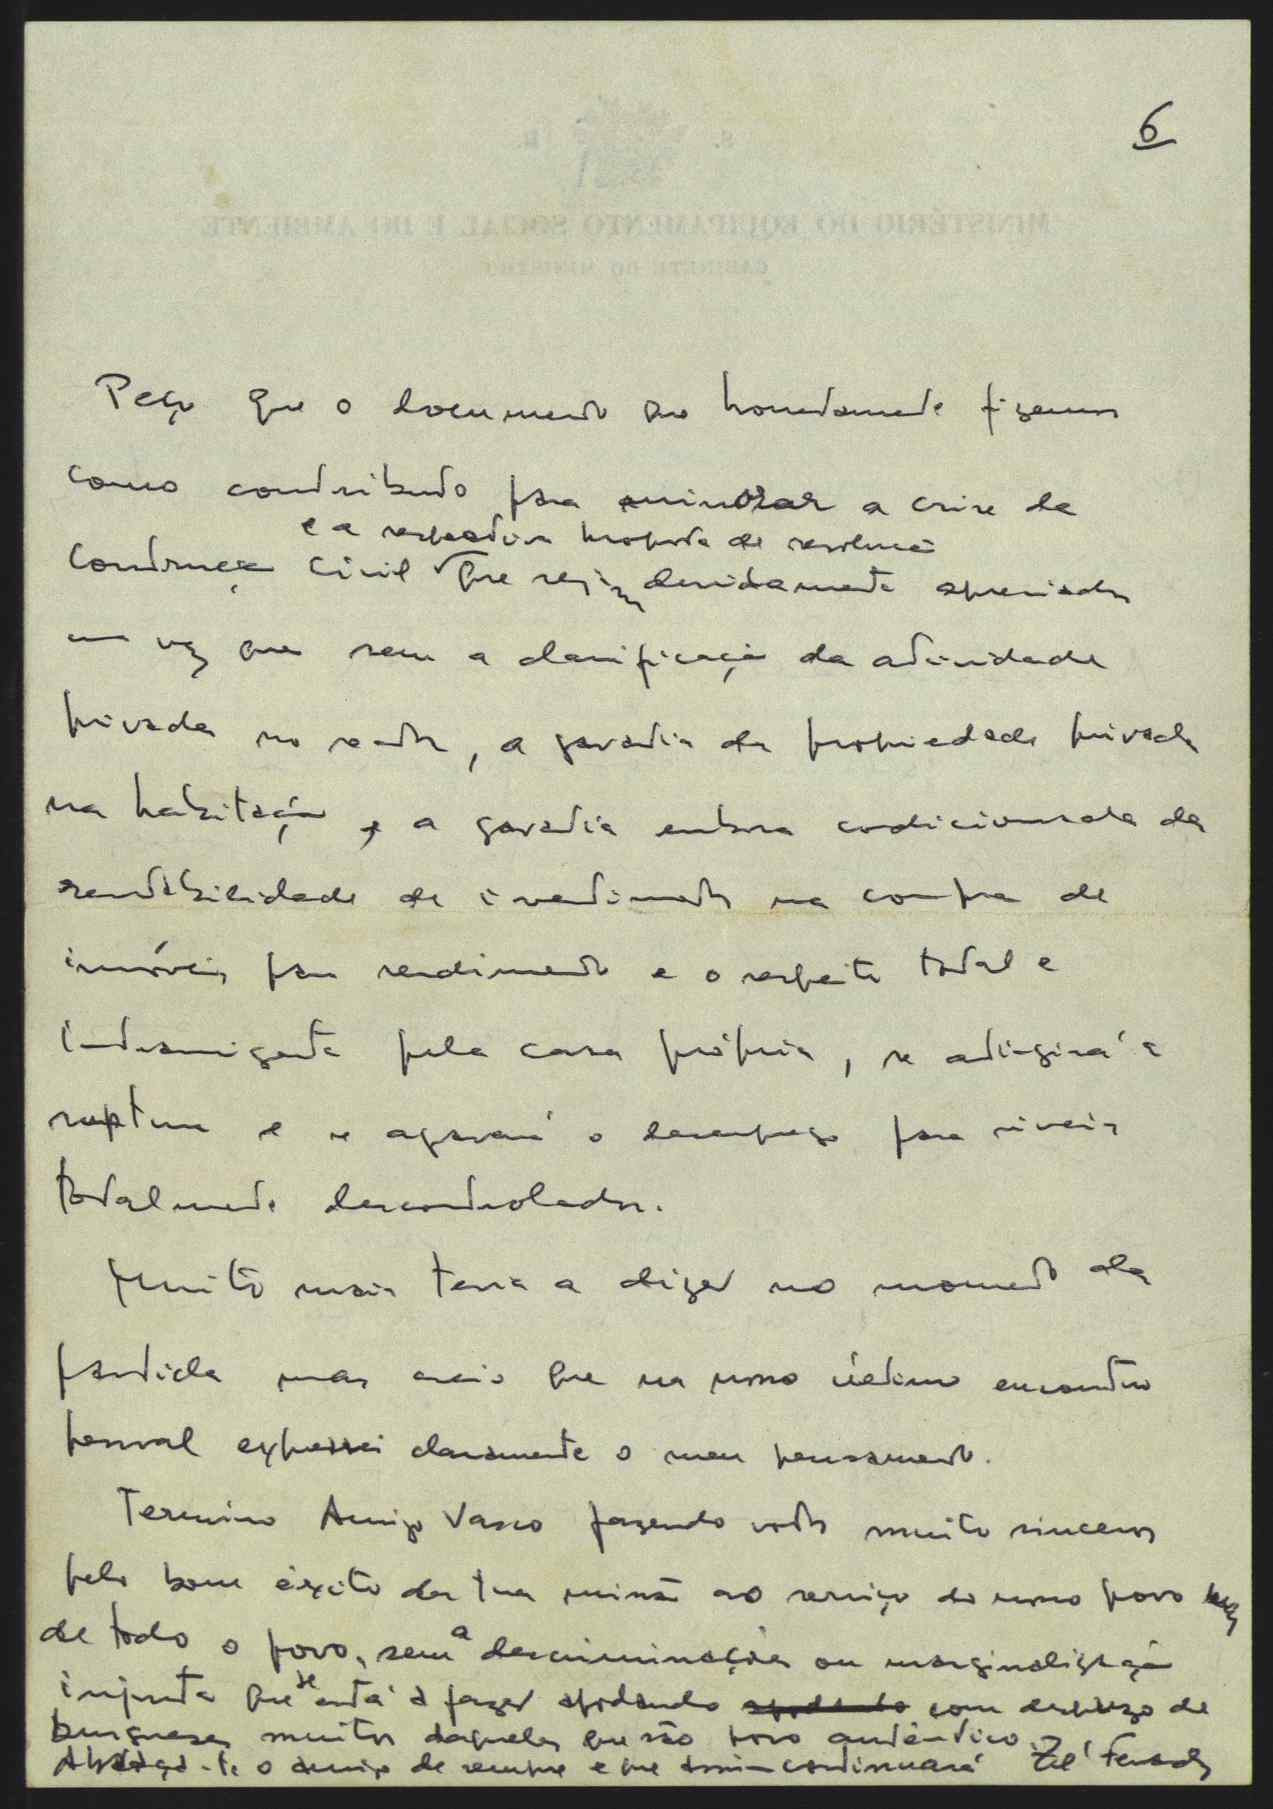 6
S. R.
MINISTÉRIO DO EQUIPAMENTO SOCIAL E DO AMBIENTE
GABINETE DO MINISTRO
Peço que o documento que honestamente fizemos
como contributo para minorar a crise da
e a respectiva proposta de resolução
Construção Civil que sejam devidamente apreciados
uma vez que sem a clarificação da actividade
privada no sector, a garantia da propriedade privada
na habitação e a garantia embora condicionada da
rentabilidade de investimentos na compra de
imóveis para rendimento e o respeito total e
intransigente pela casa própria, se atingirá a
ruptura e se agravará o desemprego para níveis
totalmente descontrolados.
Muito mais teria a dizer no momento da
partida mas creio que no nosso último encontro
pessoal expressei claramente o meu pensamento.
Termino Amigo Vasco fazendo votos muito sinceros
pelo bom êxito da tua missão ao serviço do nosso povo
de todo o povo, sem a descriminação ou marginalização
injusta que se está a fazer apodando com desprezo de
burgueses muitos daqueles que são povo autêntico.
Abraça-te o amigo de sempre e que assim continuará Zé